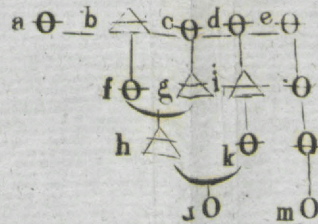 a b c d e
f g i
h k
J m